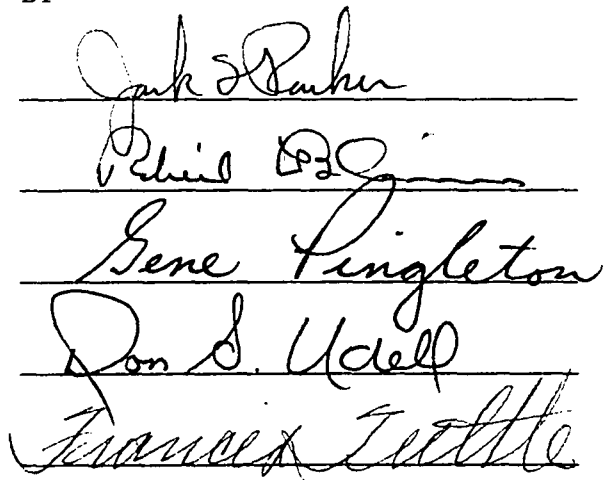 BY
Jack S Parker
B
Gene Pingleton
Don S. Udell
Francis Tuttle